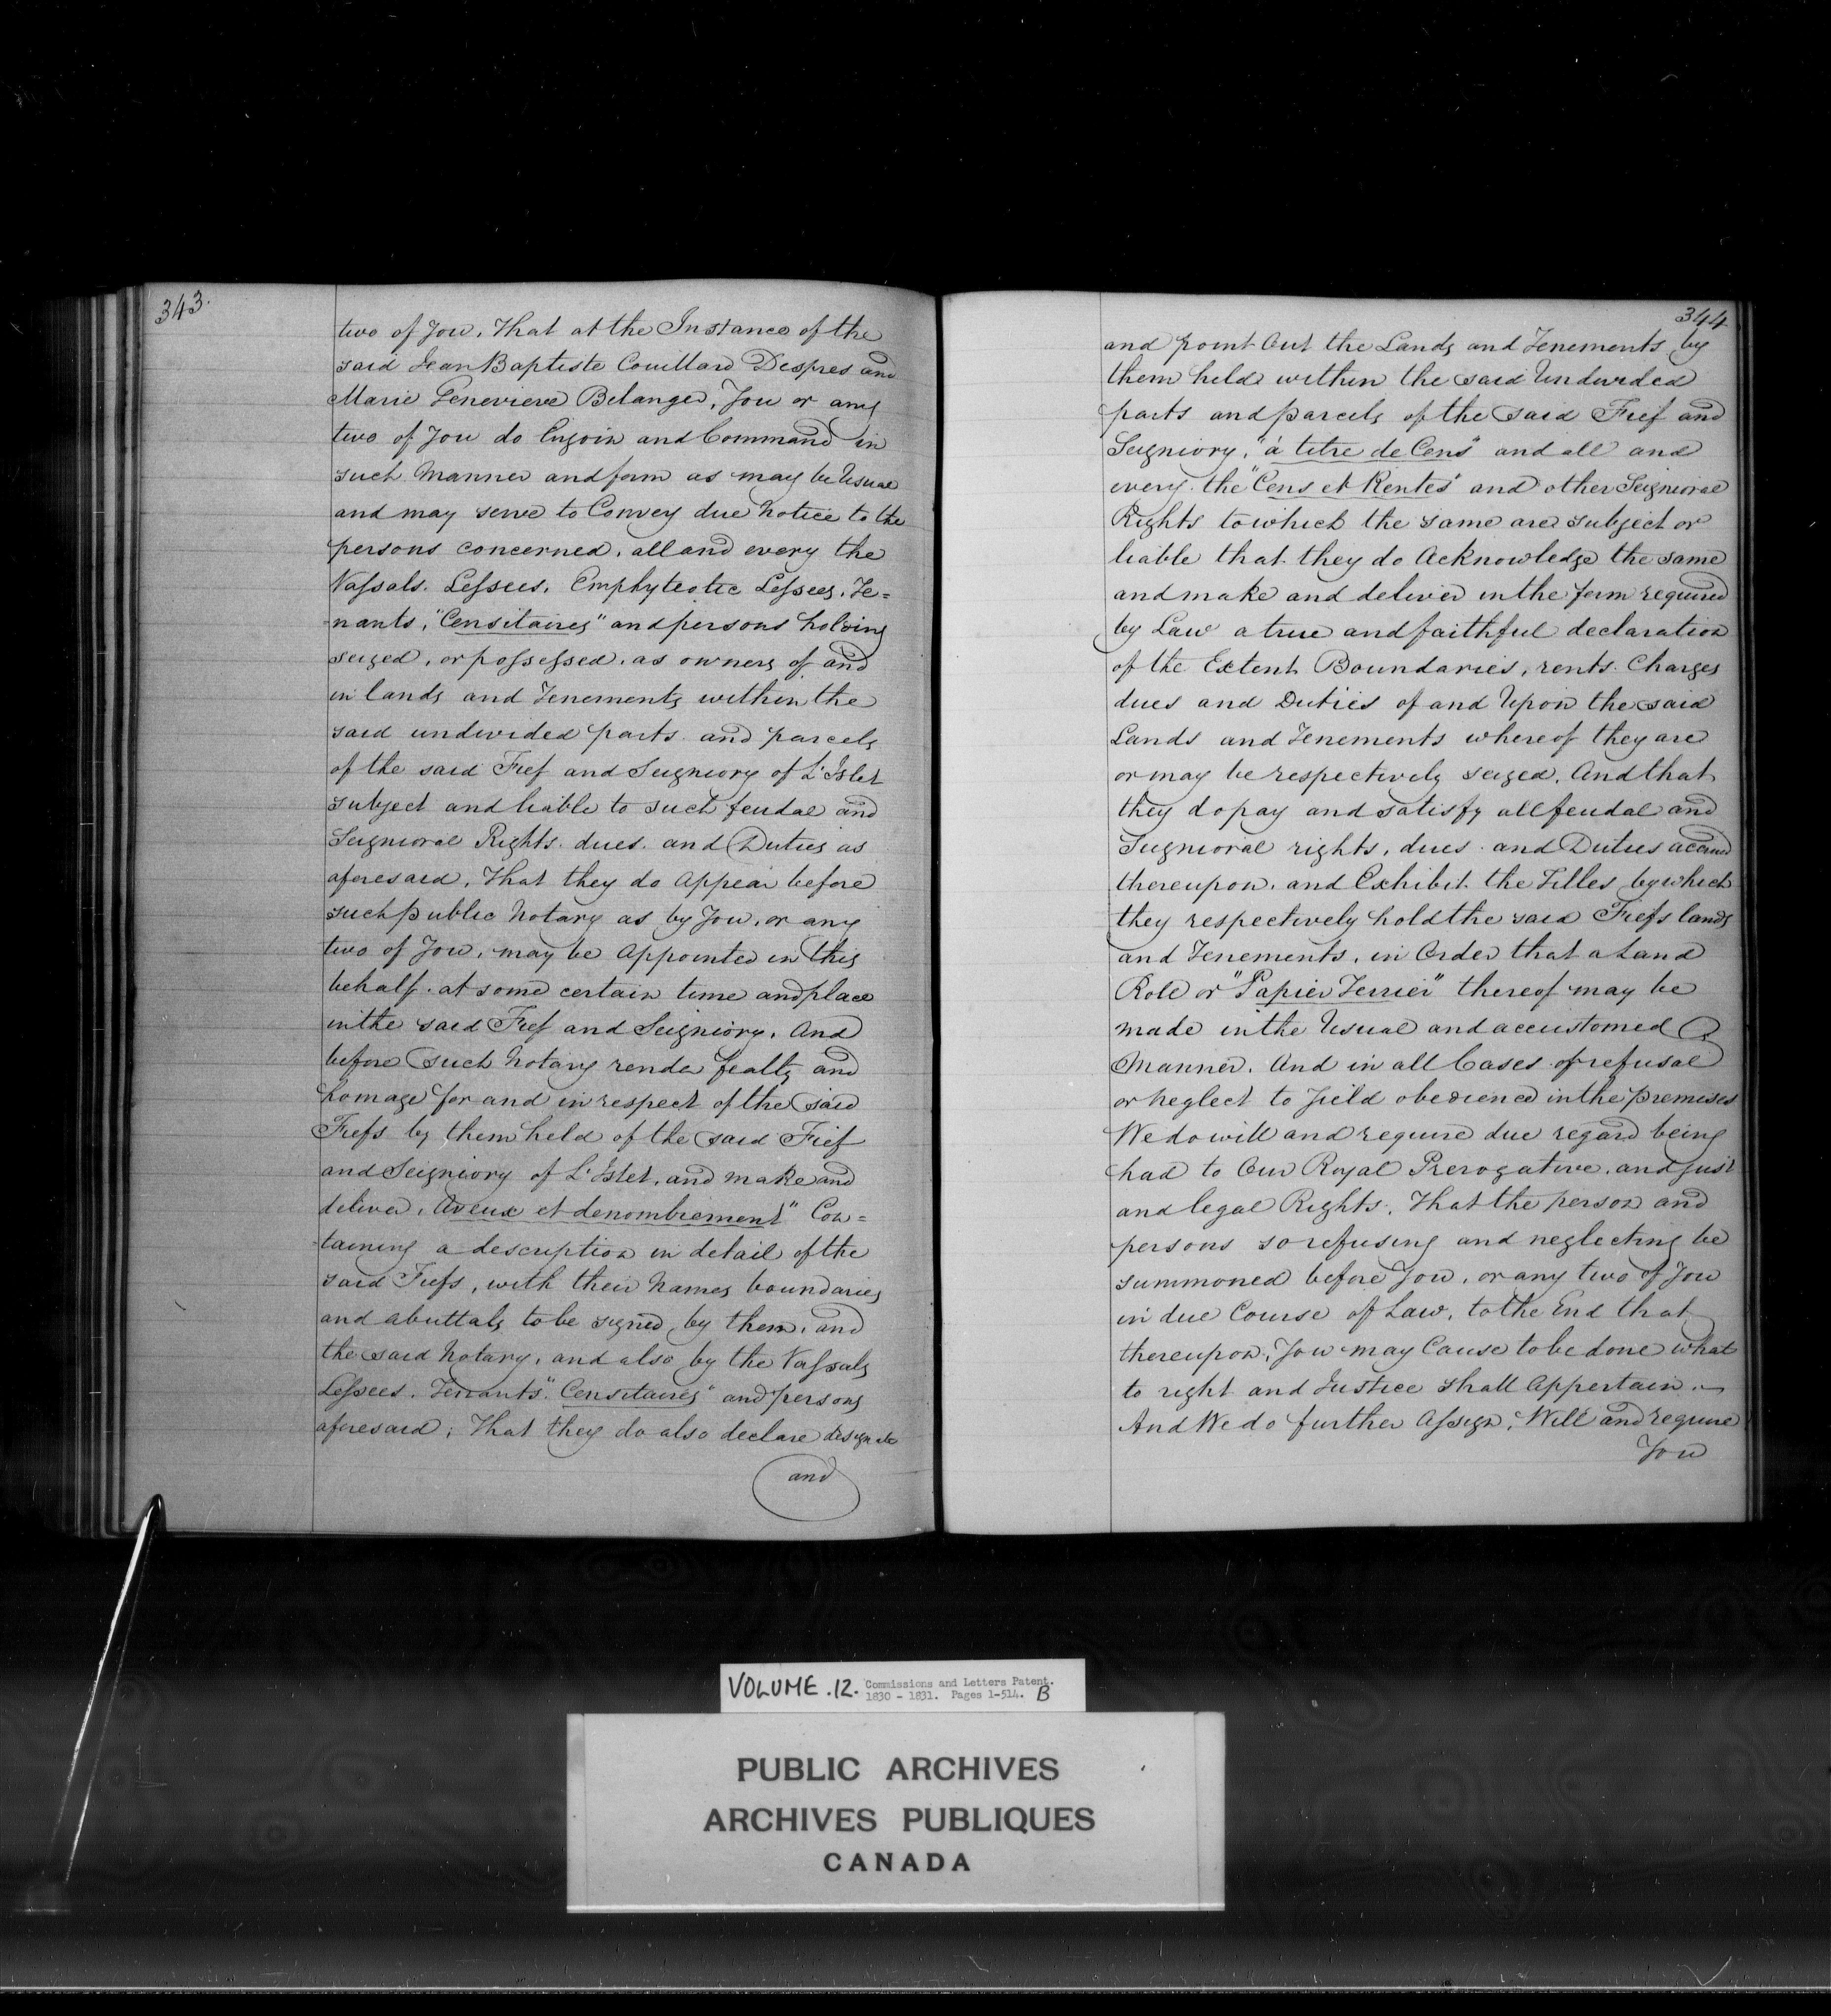 343.
two of You, That at the Instance of the
said Jean Baptiste Couillard Despres and
Marie Genevieve Belanger, You or any
two of You do Enjoin and Command in
such Manner and form as may be Usual
and may serve to Convey due Notice to the
persons concerned, all and every the
Vassals. Lessees, Emphyteotic Lessees, Te=
nants, "Censitaires" and persons holding
seized, or possessed, as owners of and
in lands and Tenements within the
said undivided parts and parcels
of the said Fief and Seigniory of L'Islet
subject and liable to such feudal and
Seignioral Rights. dues. and Duties as
aforesaid, That they do appear before
such public Notary as by You, or any
two of You, may be Appointed in this
behalf. at some certain time and place
in the said Fief and Seigniory, And
before such Notary render fealty and
homage for and in respect of the said
Fiefs by them held of the said Fief
and Seigniory of L'Islet, and make and
deliver, Aveux et denombrement" Con=
taining a description in detail of the
said Fiefs, with their Names boundaries
and abuttals to be signed by them, and
the said Notary, and also by the Vassals
Lessees. Tenants" Censitaires" and persons
aforesaid; That they do also declare designate
and
344
and point Out the Lands and Tenements by
them held within the said Undivided
parts and parcels of the said Fief and
Seigniory, "á titre de Cens" and all and
every the "Cens et Rentes" and other Seignioral
Rights to which the same are subject or
liable that they do Acknowledge the same
and make and deliver in the form required
by Law a true and faithful declaration
of the Extent Boundaries, rents. Charges
dues and Duties of and Upon the said
Lands and Tenements whereof they are
or may be respectively seized, And that
they do pay and satisfy all feudal and
Seignioral rights, dues and Duties accrued
thereupon, and Exhibit the Titles by which
they respectively hold the said Fiefs lands
and Tenements, in Order that a Land
Role or "Papier Terrier" thereof may be
made in the Usual and accustomed
Manner. And in all Cases of refusal
or neglect to Yield obedience in the premises
We do will and require due regard being
had to Our Royal Prerogative, and just
and legal Rights, That the person and
persons so refusing and neglecting be
summoned before You, or any two of You
in due Course of Law, to the End that
thereupon, You may Cause to be done what
to right and Justice shall Appertain.
And We do further Assign, Will and require
You
VOLUME .12. Commissions and Letters Patent.
1830 - 1831. Pages 1-514. B
PUBLIC ARCHIVES
ARCHIVES PUBLIQUES
CANADA